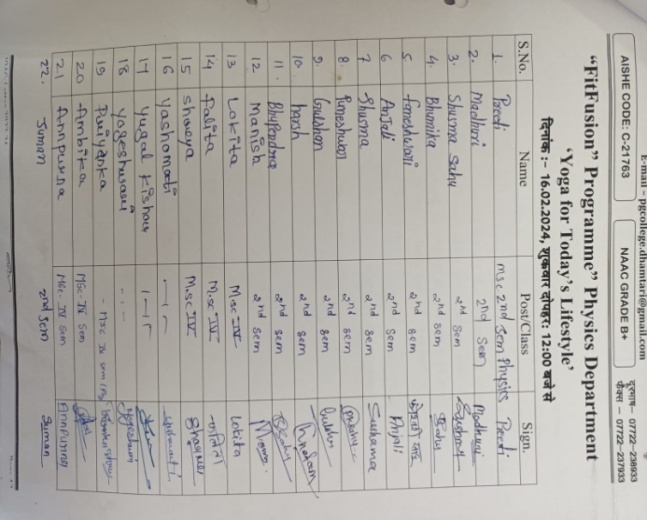 E-mail - pgcollege.dhamtari@gmail.com
AISHE CODE: C-21763 NAAC GRADE B+ दूरभाष- 07722-238933
फैक्स - 07722-237933
“FitFusion” Programme” Physics Department
‘Yoga for Today’s Lifestyle’
दिनांक :- 16.02.2024, शुक्रवार दोपहर: 12:00 बजे से
S.No. Name Post/Class Sign.
1. Preeti msc 2nd sem Physics Preeti
2. Madhuri 2nd Sem Madhuri
3. Shusma Sahu 2nd Sem
4. Bhumika 2nd sem
5. Fameshwari 2nd sem
6 Anjali 2nd Sem Anjali
7 Shusma 2nd sem Sushama
8. Pumeshwari 2nd sem
9. Gulshan 2nd sem
10. harsh 2nd sem
11. Bhupendra 2nd sem
12 Manish 2nd sem
13 Lokita M.sc IV Lokita
14 Falita M.sc IV
15 shreya M.sc IV
16 Yashomati -11-
17 Yugal Kishor -11-
18 Yogeshwari
19 Priyanka - Msc IV sem
20 Ambika MSc- IV Sem
21 Annpurna MSc- IV Sem Annpurna
22. Suman 2nd Sem Suman